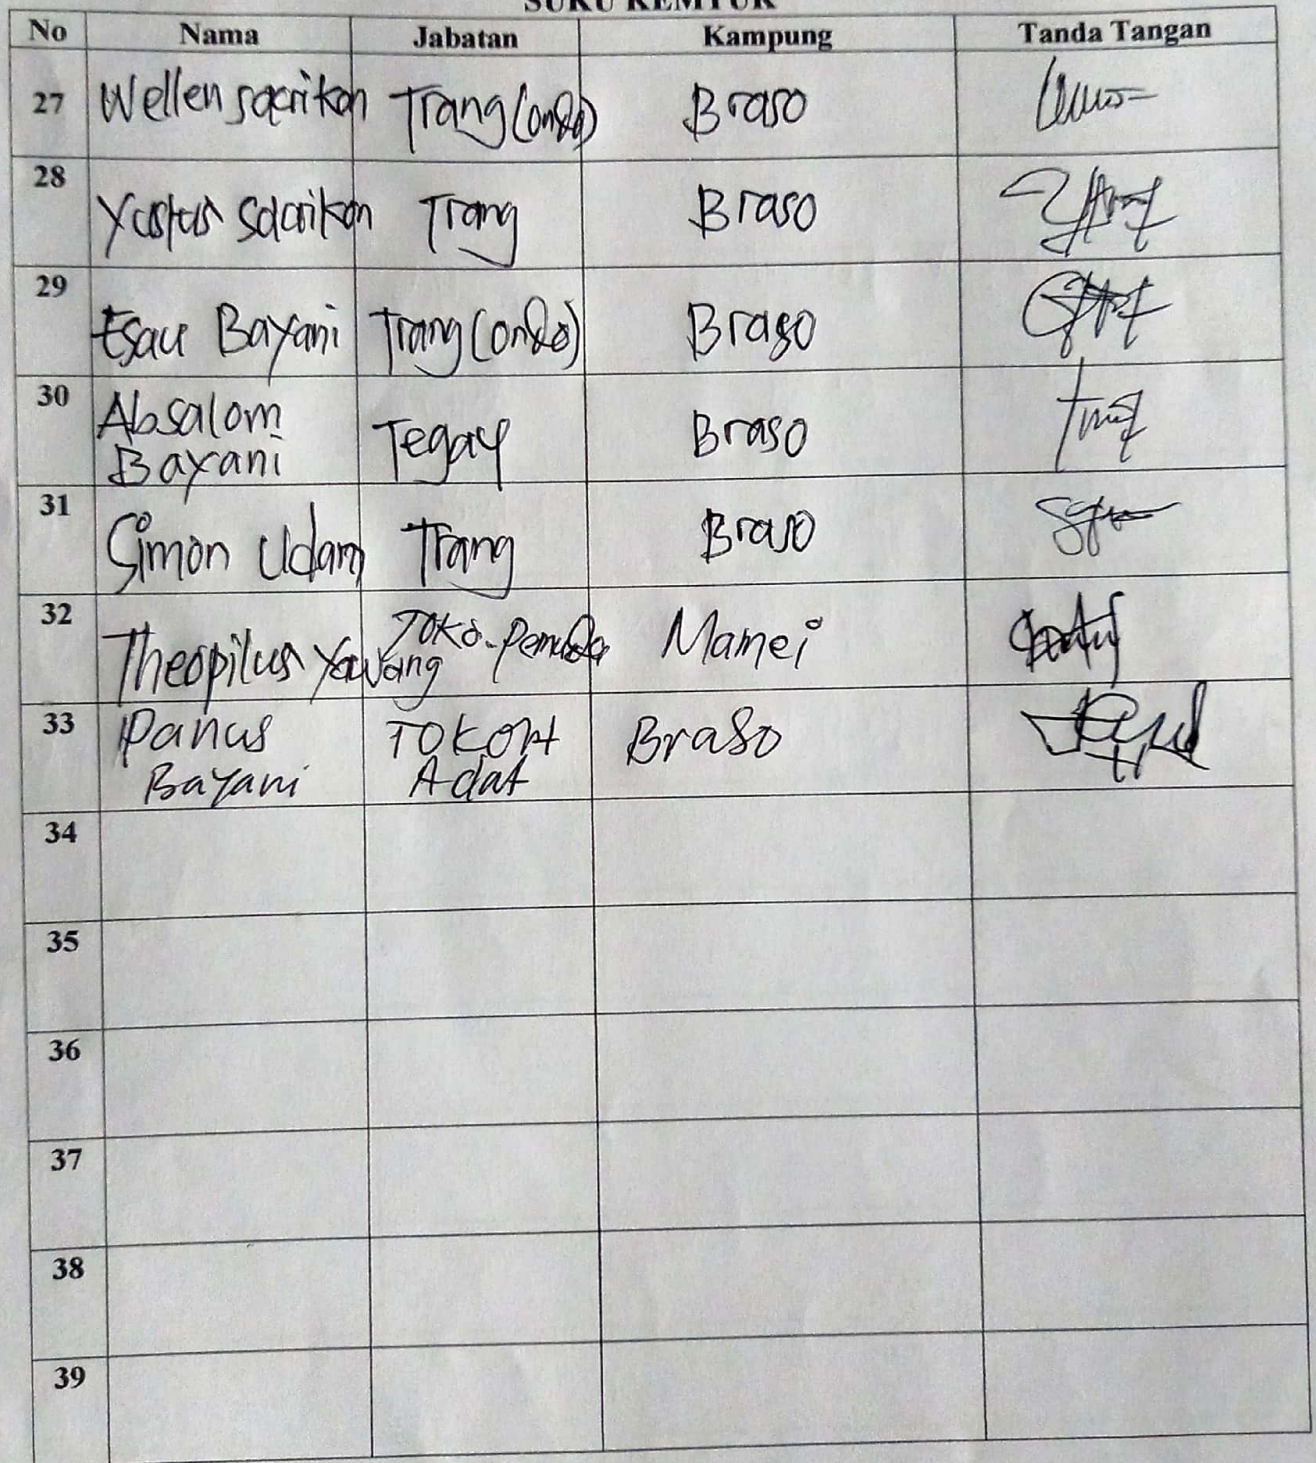 SUKU KEMTUK
No Nama Jabatan Kampung Tanda Tangan
27 Wellen sacrikan Trang (onda) Braso
28 Yustus Sacrikan Trang Braso
29 Esau Bayani Trang (ondo) Braso
30 Absalom Bayani Tegay Braso
31 Simon Udam Trang Braso
32 Theopilus Yawang Toko-Pemuda Mamei
33 Panus Bayani TOKOH Adat Braso
34
35
36
37
38
39